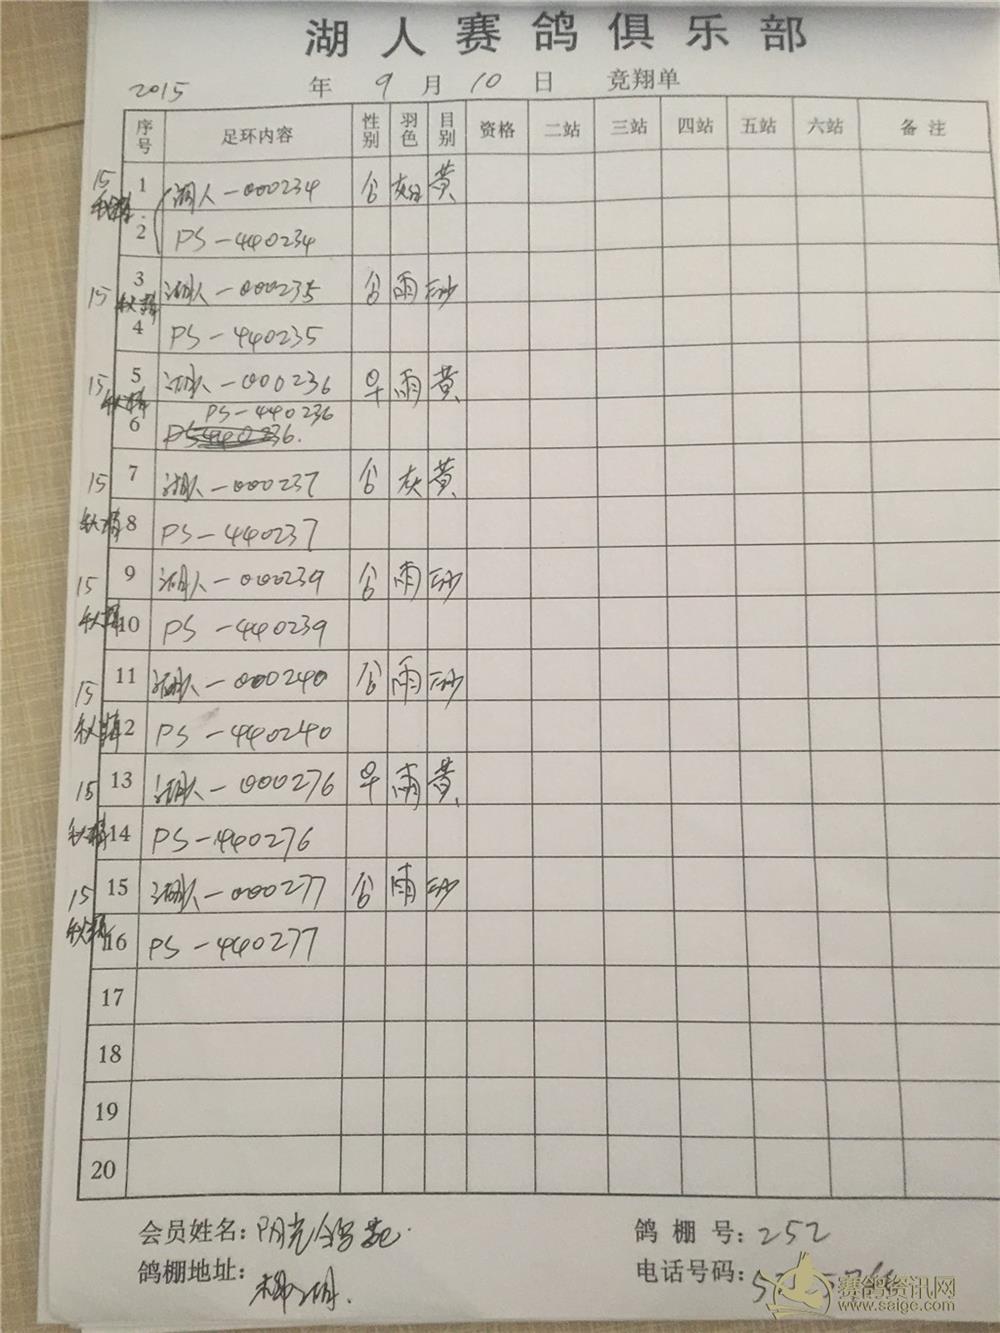 湖人赛鸽俱乐部
2015 年 9 月 10 日 竞翔单
序号 足环内容 性别 羽色 目别 资格 二站 三站 四站 五站 六站 备注
15 1 湖人-000234 黄
2 PS-440234
15 3 湖人-000235 雨 砂
4 PS-440235
15 5 湖人-000236 雨 黄
PS-440236
6
15 7 湖人-000237 灰 黄
8 PS-440237
15 9 湖人-000239 雨 砂
10 PS-440239
15 11 湖人-000240 雨 砂
12 PS-440240
15 13 湖人-000276 雨 黄
14 PS-440276
15 15 湖人-000277 雨 砂
16 PS-440277
17
18
19
20
会员姓名: 阳光鸽苑 鸽棚号: 252
鸽棚地址: 电话号码:
赛鸽资讯网
www.saige.com